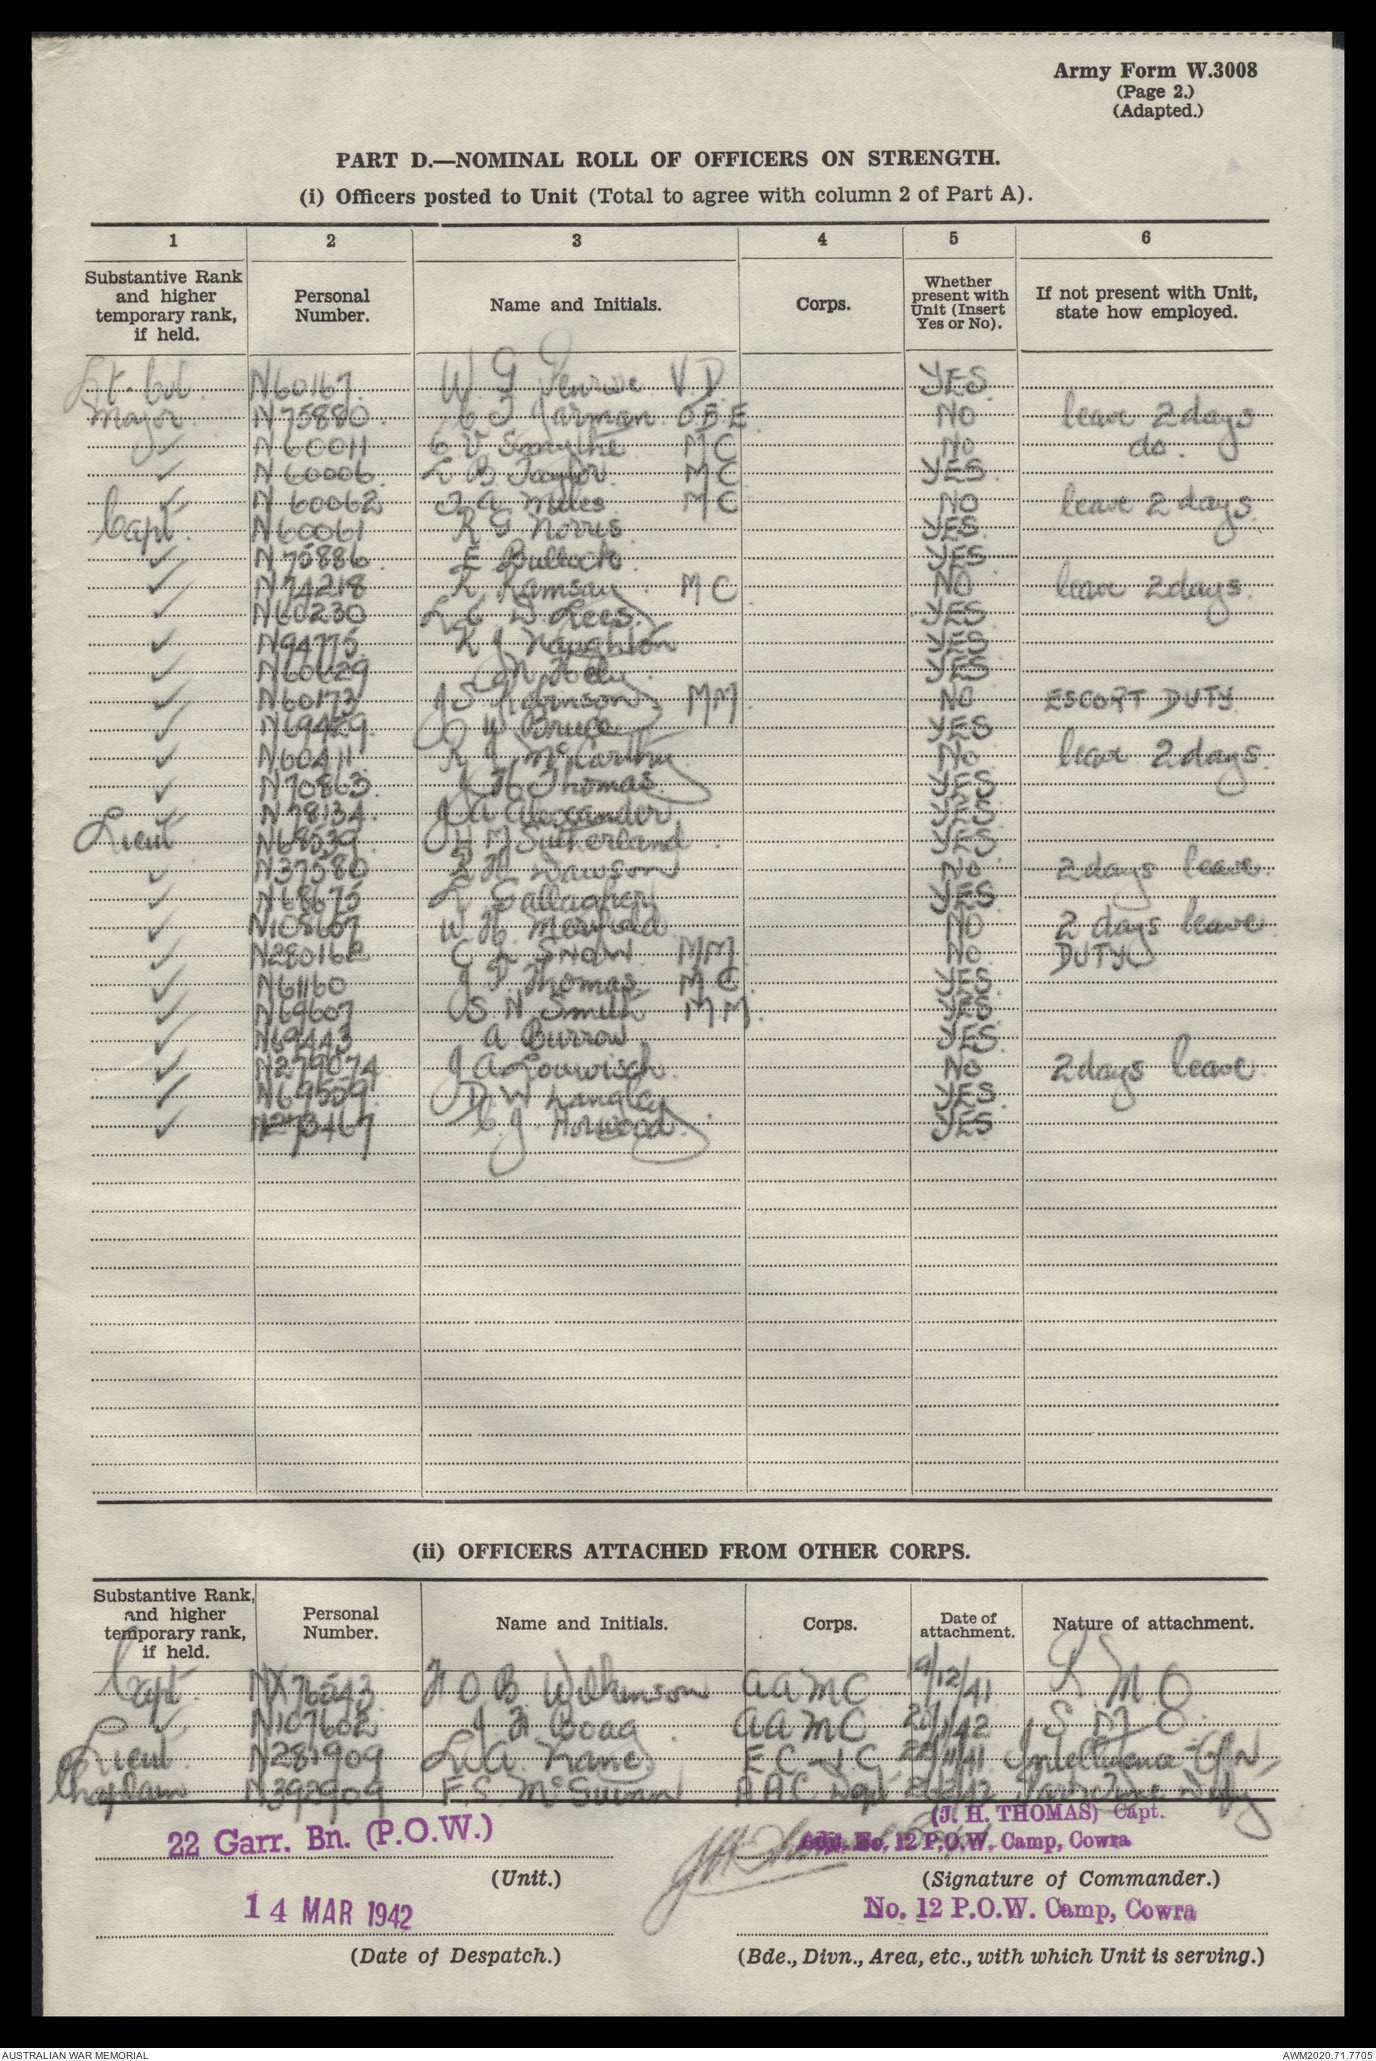 Army Form W.3008
(Page 2.)
(Adapted.)
PART D.—NOMINAL ROLL OF OFFICERS ON STRENGTH.
(i) Officers posted to Unit (Total to agree with column 2 of Part A).
1 2 3 4 5 6
Substantive Rank and higher temporary rank, if held. Personal Number. Name and Initials. Corps. Whether present with Unit (Insert Yes or No). If not present with Unit, state how employed.
Lt. Col. N60167 W G Penrose V.D. YES
Major N75880 C T Jarman O.B.E. NO leave 2 days
✓ N60011 C V Smythe MC NO do.
✓ N60006 L B Taylor MC YES
✓ N60062 J A Miles MC NO leave 2 days
Capt. N60061 R G Norris YES
✓ N75886 E Bullock YES
✓ N74218 K. Ramsay MC NO leave 2 days.
✓ N60230 L C D Lees. YES
✓ N94775 K J Naughton YES
✓ N60629 N Hely YES
✓ N60173 J S Robinson MM. NO ESCORT DUTY.
✓ N69429 W Bruce YES
✓ N60411 R J McCarthy NO leave 2 days.
✓ N70863 J H Thomas YES
✓ N78134 J A Alexander YES
Lieut N69539 H M Sutherland YES
✓ N37580 R H Dawson NO 2 days leave.
✓ N68675 L Gallagher YES
✓ N108607 W H. Merifield NO 2 days leave
✓ N280162 C L SNOW MM. NO DUTY
✓ N61160 J P. Thomas MC YES
✓ N69607 S N Smith MM. YES
✓ N69443 A Burrow YES
✓ N279074 J A Louwisch NO 2 days leave.
✓ N69559 D W Langley YES
✓ N273467 C J. Horwood YES
(ii) OFFICERS ATTACHED FROM OTHER CORPS.
Substantive Rank, and higher temporary rank, if held. Personal Number. Name and Initials. Corps. Date of attachment. Nature of attachment.
Capt. NX76543 H O B Wilkinson AAMC 19/12/41 R M O
✓ N107602 J H Boag AAMC 1/42 S M O
Lieut N281909 L. A. Lane E.C. I.C. 11/41 Intelligence
Chaplain N392909 F.S. McGuinn
22 Garr. Bn. (P.O.W.)
(J. H. THOMAS) Capt.
Adjt. No. 12 P.O.W. Camp, Cowra
(Unit.) (Signature of Commander.)
14 MAR 1942 No. 12 P.O.W. Camp, Cowra
(Date of Despatch.) (Bde., Divn., Area, etc., with which Unit is serving.)
AUSTRALIAN WAR MEMORIAL AWM2020.71.7705